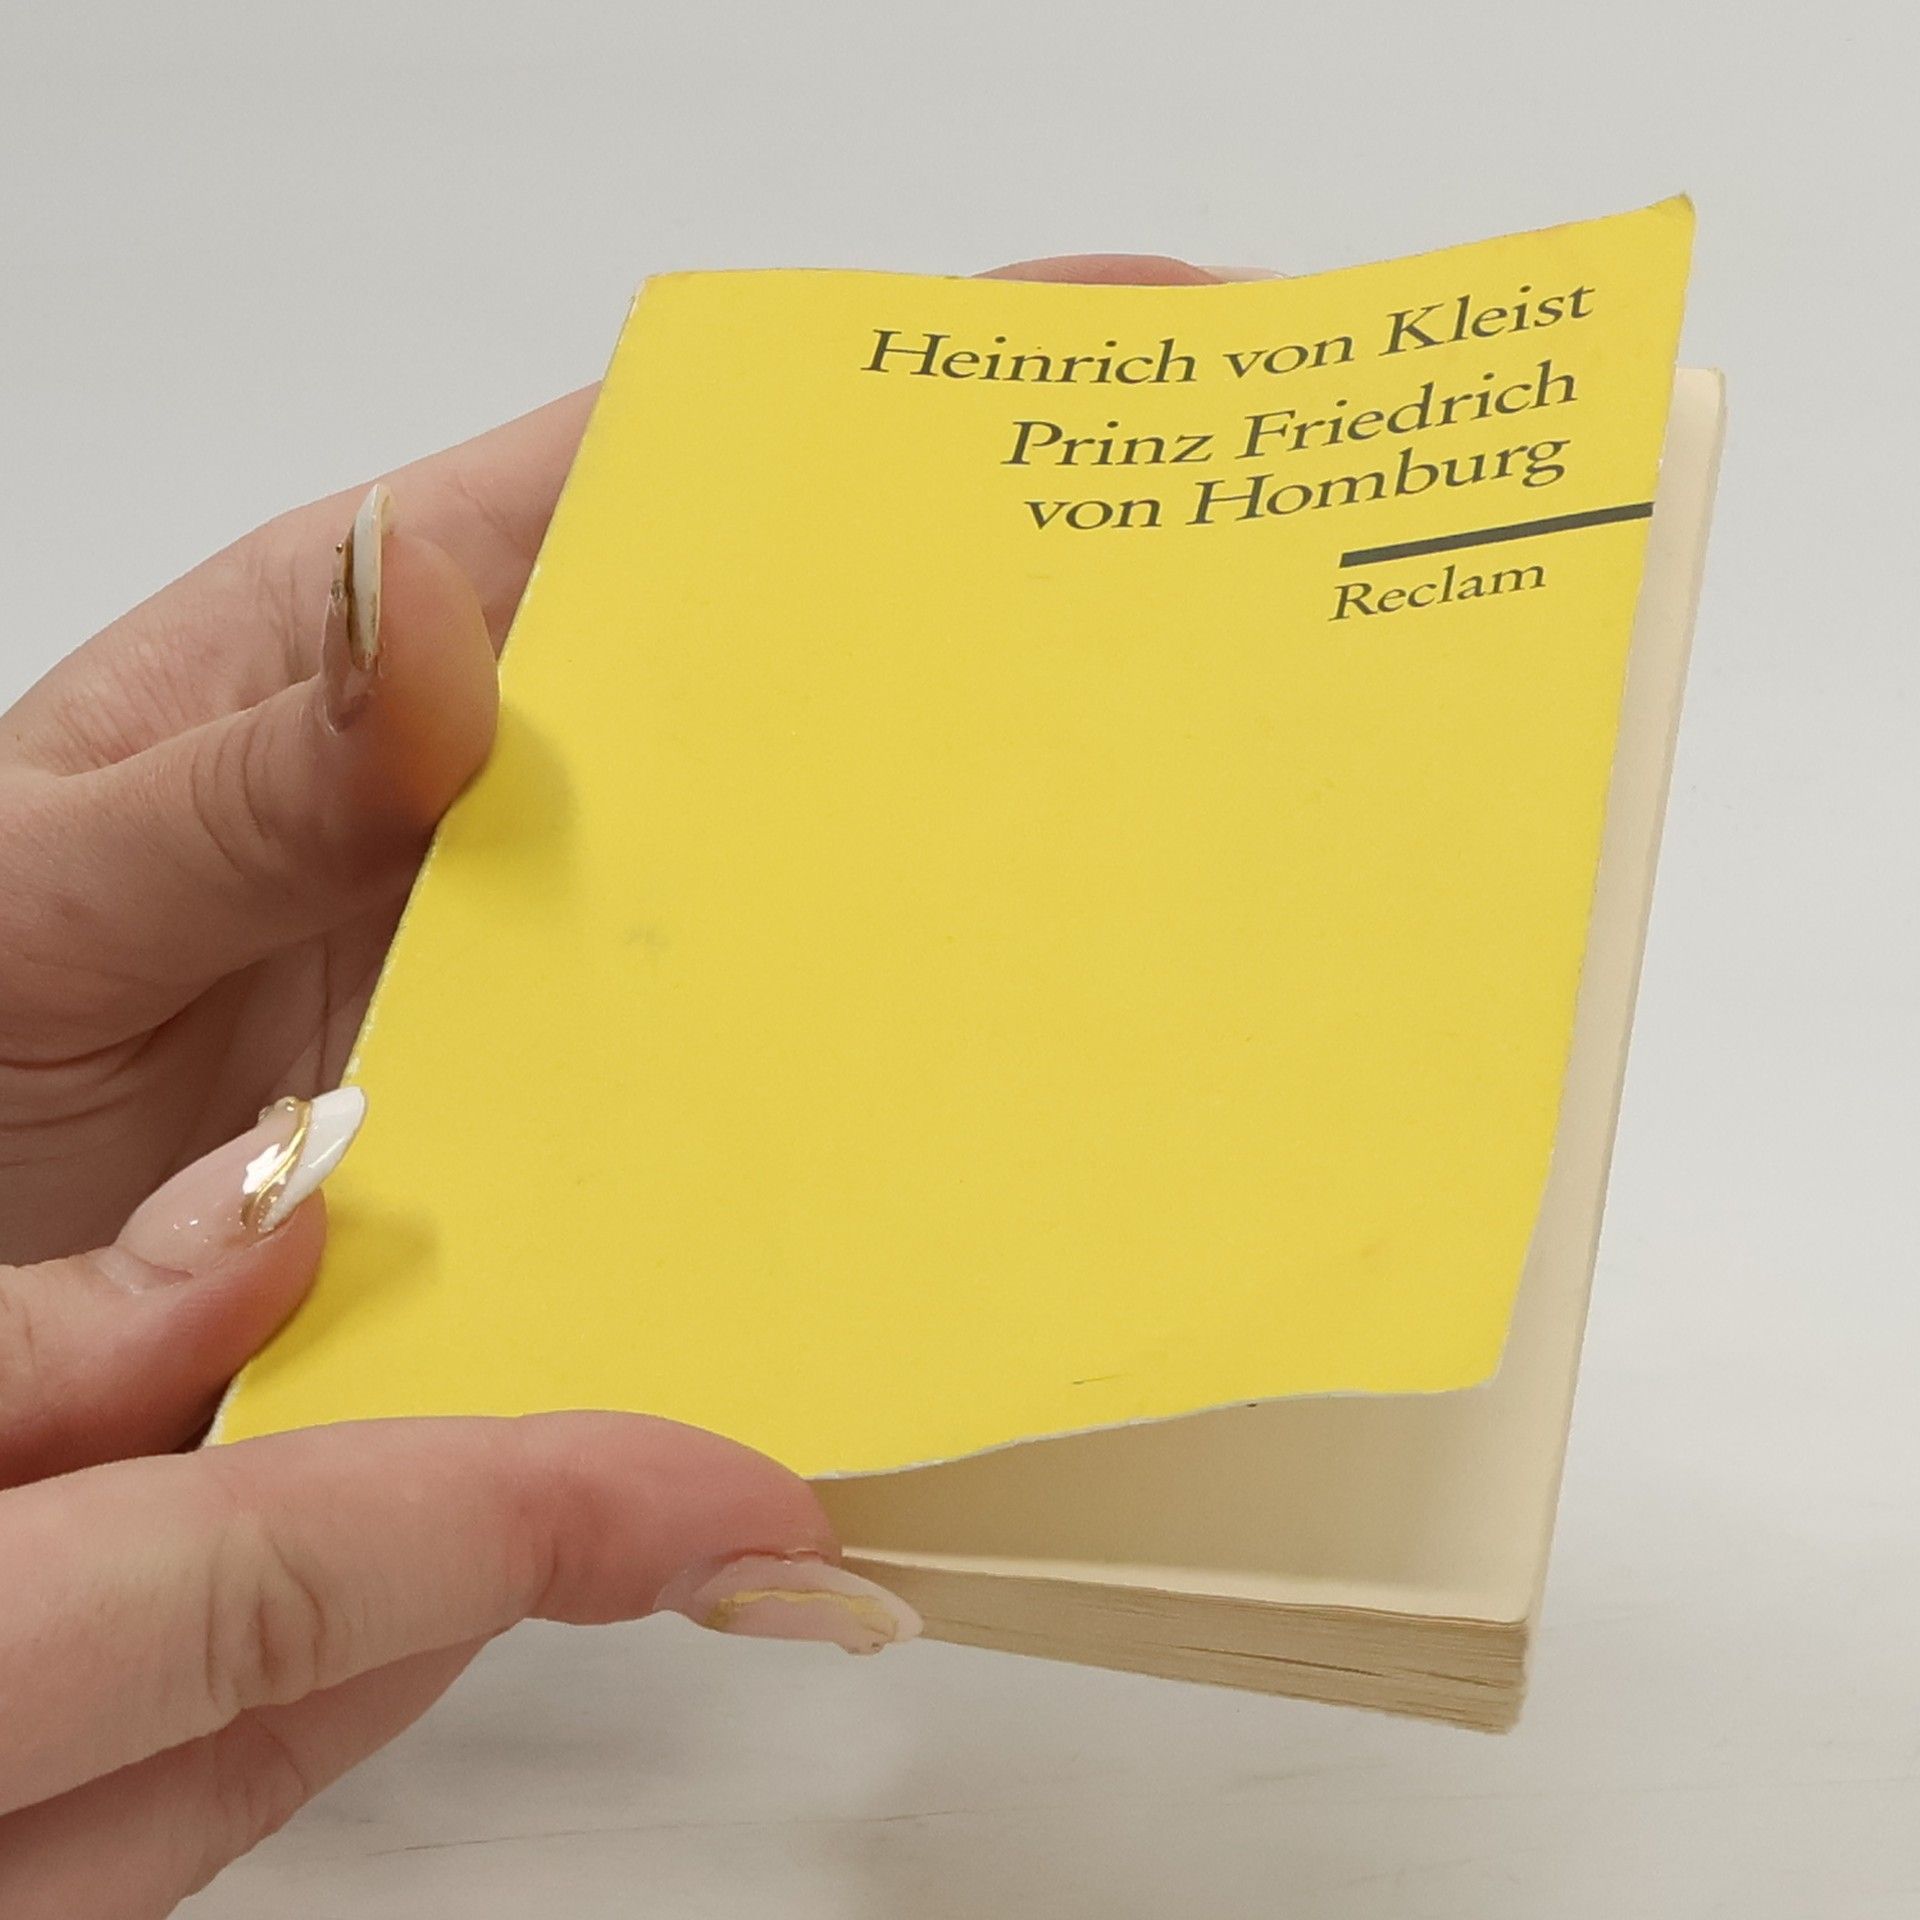 Heinrich von Kleist
Prinz Friedrich
von Homburg
Reclam